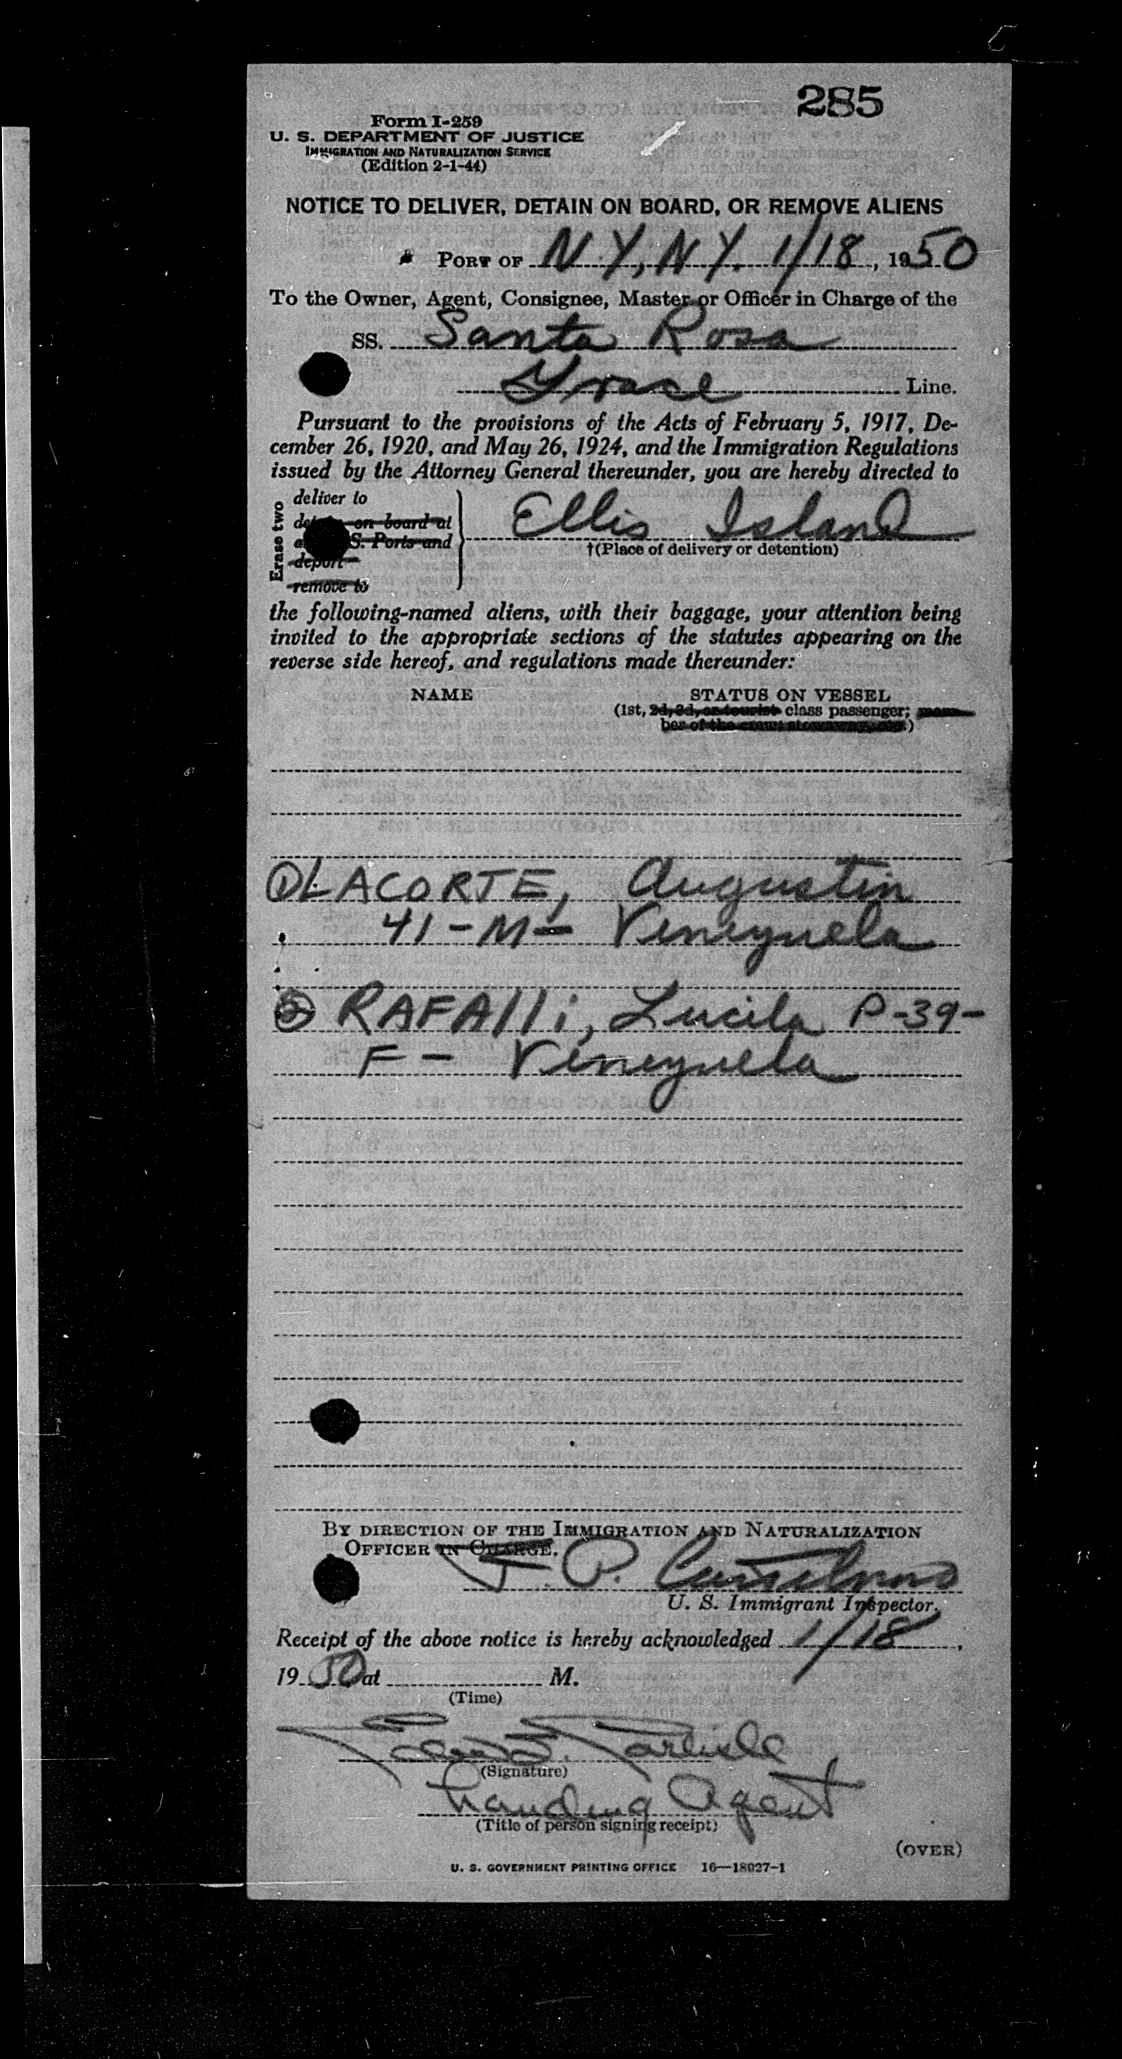 285
Form I-259
U. S. DEPARTMENT OF JUSTICE
IMMIGRATION AND NATURALIZATION SERVICE
(Edition 2-1-44)
NOTICE TO DELIVER, DETAIN ON BOARD, OR REMOVE ALIENS
PORT OF N.Y., N.Y. 1/18, 1950
To the Owner, Agent, Consignee, Master or Officer in Charge of the
SS. Santa Rosa
Grace Line.
Pursuant to the provisions of the Acts of February 5, 1917, De-
cember 26, 1920, and May 26, 1924, and the Immigration Regulations
issued by the Attorney General thereunder, you are hereby directed to
Erase two
deliver to
on board at
S. Ports and
deport
remove to
Ellis Island
†(Place of delivery or detention)
the following-named aliens, with their baggage, your attention being
invited to the appropriate sections of the statutes appearing on the
reverse side hereof, and regulations made thereunder:
NAME STATUS ON VESSEL
(1st, 2d, 3d, or tourist class passenger; mem-
ber of the crew; stowaway, etc.)
① LACORTE, Augustin
41-M- Venezuela
② RAFAlli, Lucila P-39-
F- Venezuela
BY DIRECTION OF THE IMMIGRATION AND NATURALIZATION
OFFICER IN CHARGE.
P.
U. S. Immigrant Inspector.
Receipt of the above notice is hereby acknowledged 1/18,
1950 at M.
(Time)
Carlisle
(Signature)
Landing Agent
(Title of person signing receipt)
(OVER)
U. S. GOVERNMENT PRINTING OFFICE 16—18027-1